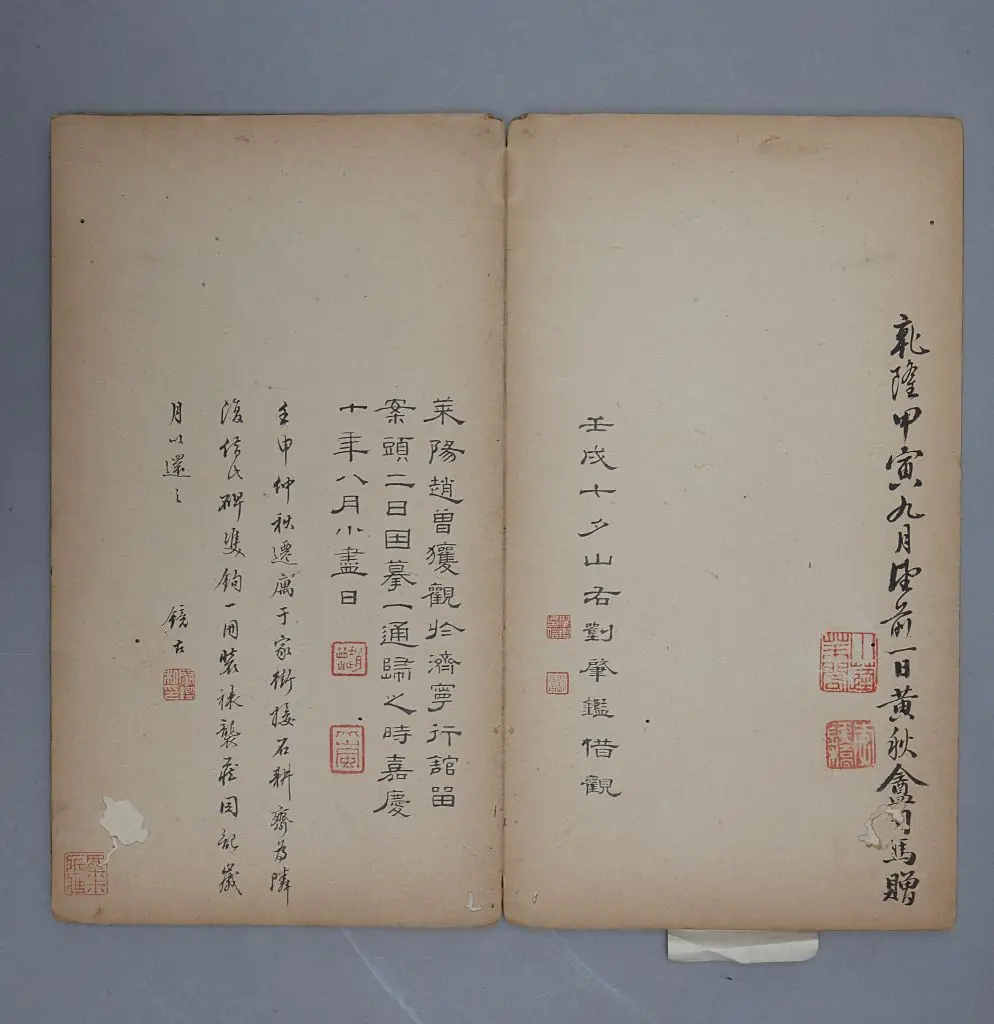 乾隆甲寅九月望前一日黃秋盦司馬贈
壬戌十夕山右劉肇鑑借觀
萊陽趙曾獲觀於濟寧行舘留
案頭二日因摹一通歸之時嘉慶
十年八月小盡日
壬申仲秋遷寓于家街接石耕齋為隣
復借氏碑雙鉤一冊裝裱襲藏因記歲
月以還之
鏡古